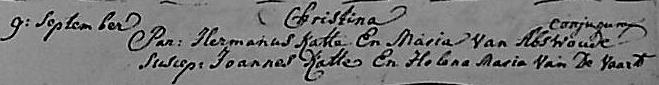 9: September Christina
Par: Hermanus Katte En Maria Van Abswoude Conjugum
Suscep: Joannes Katte En Helena Maria Van De Vaart